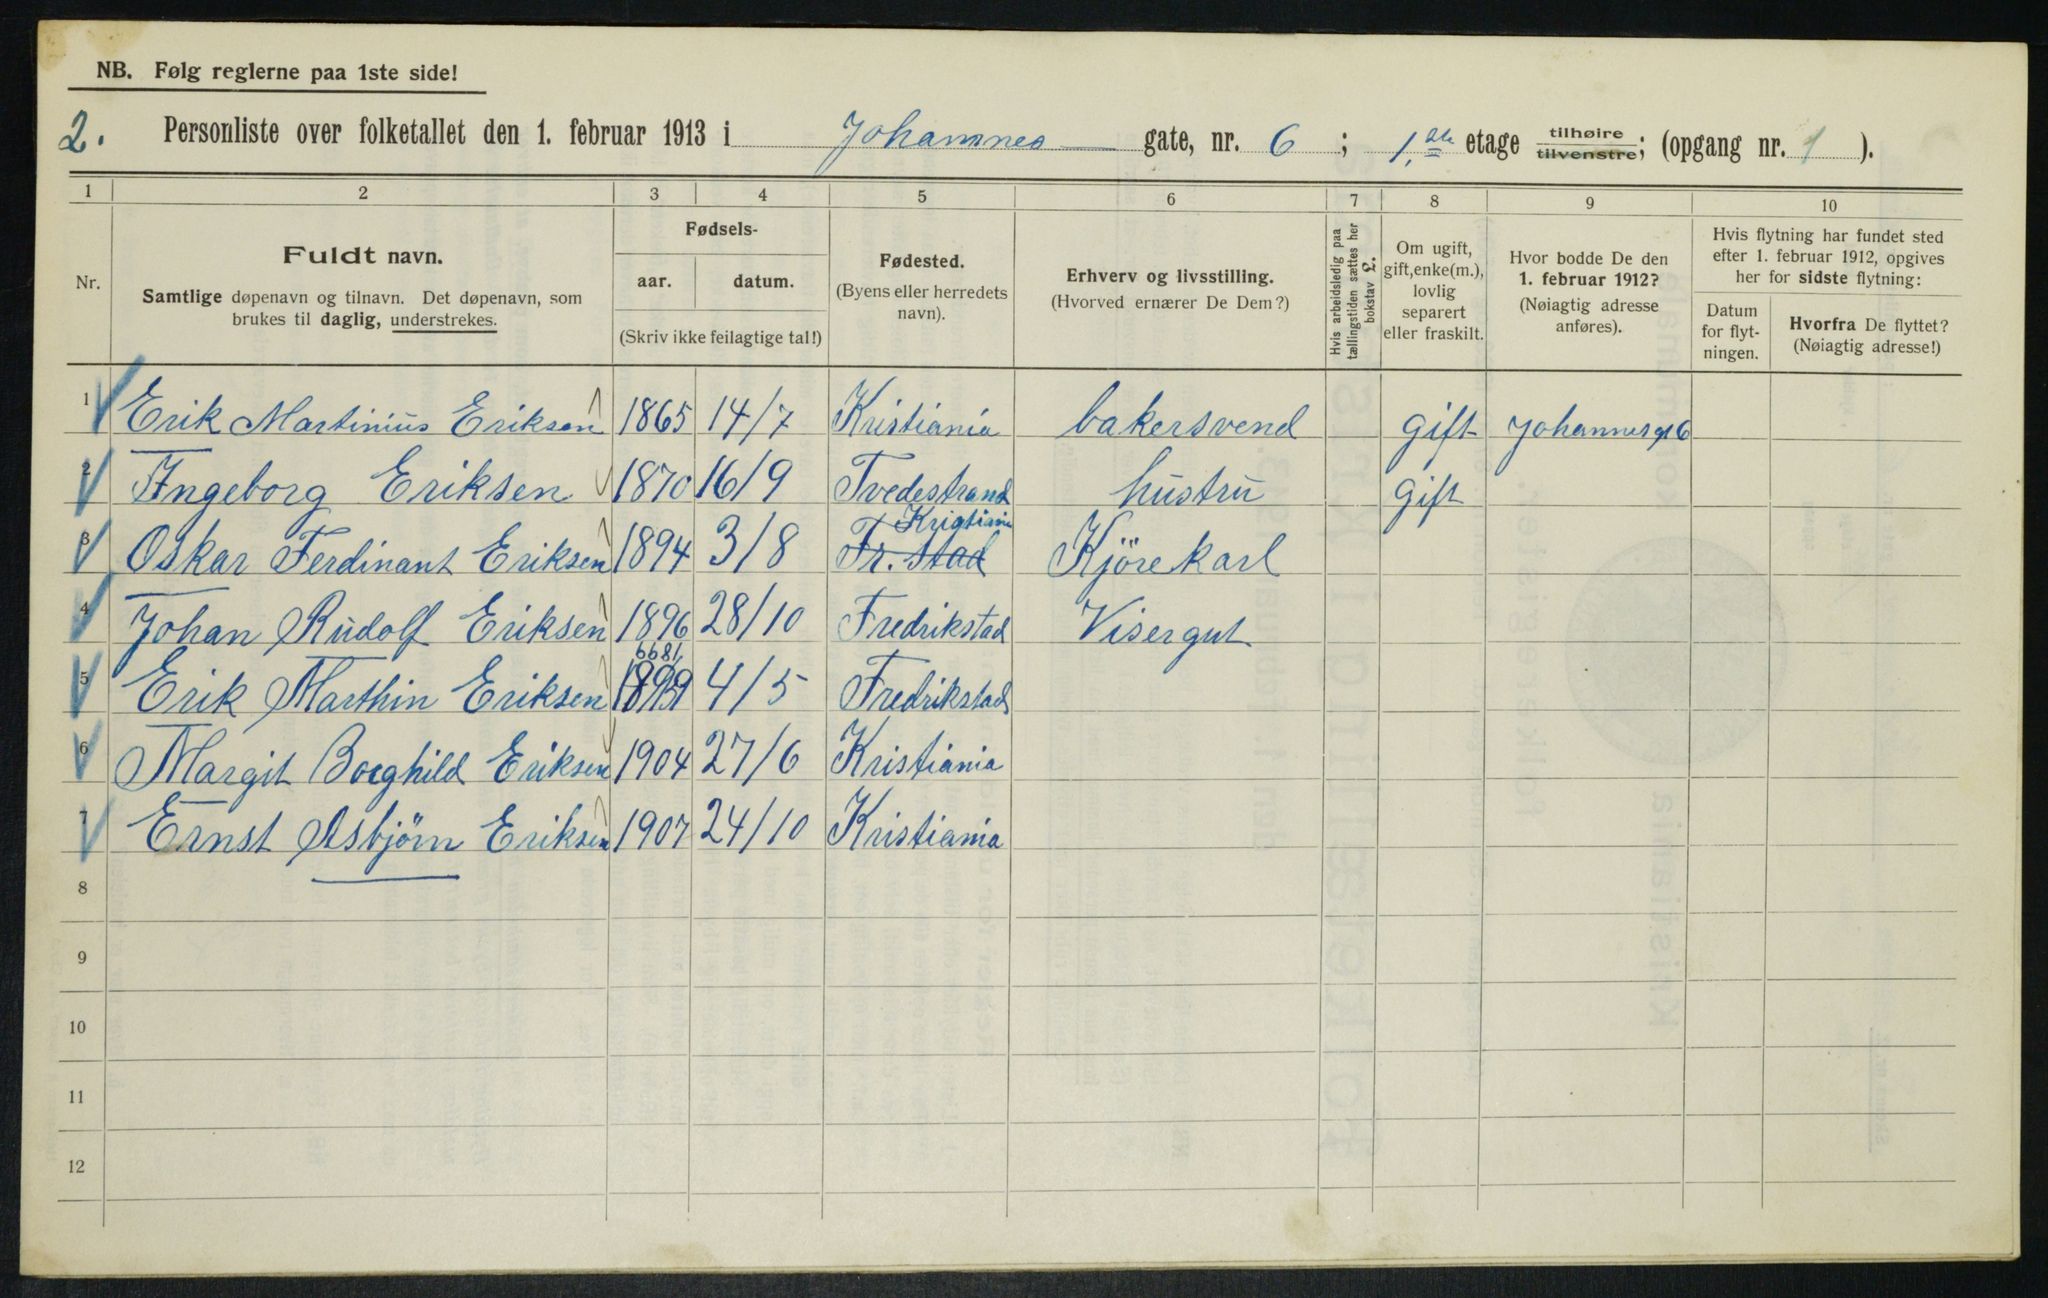 NB. Følg reglerne paa 1ste side!
2. Personliste over folketallet den 1. februar 1913 i Johannes gate, nr. 6 ; 1. etage tilhøire tilvenstre; (opgang nr. 1 ).
1 2 3 4 5 6 7 8 9 10
Nr.
Fuldt navn.
Samtlige døpenavn og tilnavn. Det døpenavn, som
brukes til daglig, understrekes.
Fødsels-
aar. datum.
(Skriv ikke feilagtige tal!)
Fødested.
(Byens eller herredets
navn).
Erhverv og livsstilling.
(Hvorved ernærer De Dem?)
Hvis arbeidsledig paa
tællingstiden sættes her
bokstav £.
Om ugift,
gift, enke(m.),
lovlig
separert
eller fraskilt.
Hvor bodde De den
1. februar 1912?
(Nøiagtig adresse
anføres).
Hvis flytning har fundet sted
efter 1. februar 1912, opgives
her for sidste flytning:
Datum
for flyt-
ningen.
Hvorfra De flyttet?
(Nøiagtig adresse!)
1 Erik Martinius Eriksen 1865 14/7 Kristiania bakersvend gift Johannesgt 6
2 Ingeborg Eriksen 1870 16/9 Tvedestrand hustru gift
Kristiania
3 Oskar Ferdinant Eriksen 1894 3/8 Fr. stad Kjörekarl
4 Johan Rudolf Eriksen 1896 28/10 Fredrikstad Visergut
5 Erik Marthin Eriksen 1899 4/5 Fredrikstad
6 Margit Borghild Eriksen 1904 27/6 Kristiania
7 Ernst Asbjörn Eriksen 1907 24/10 Kristiania
8
9
10
11
12